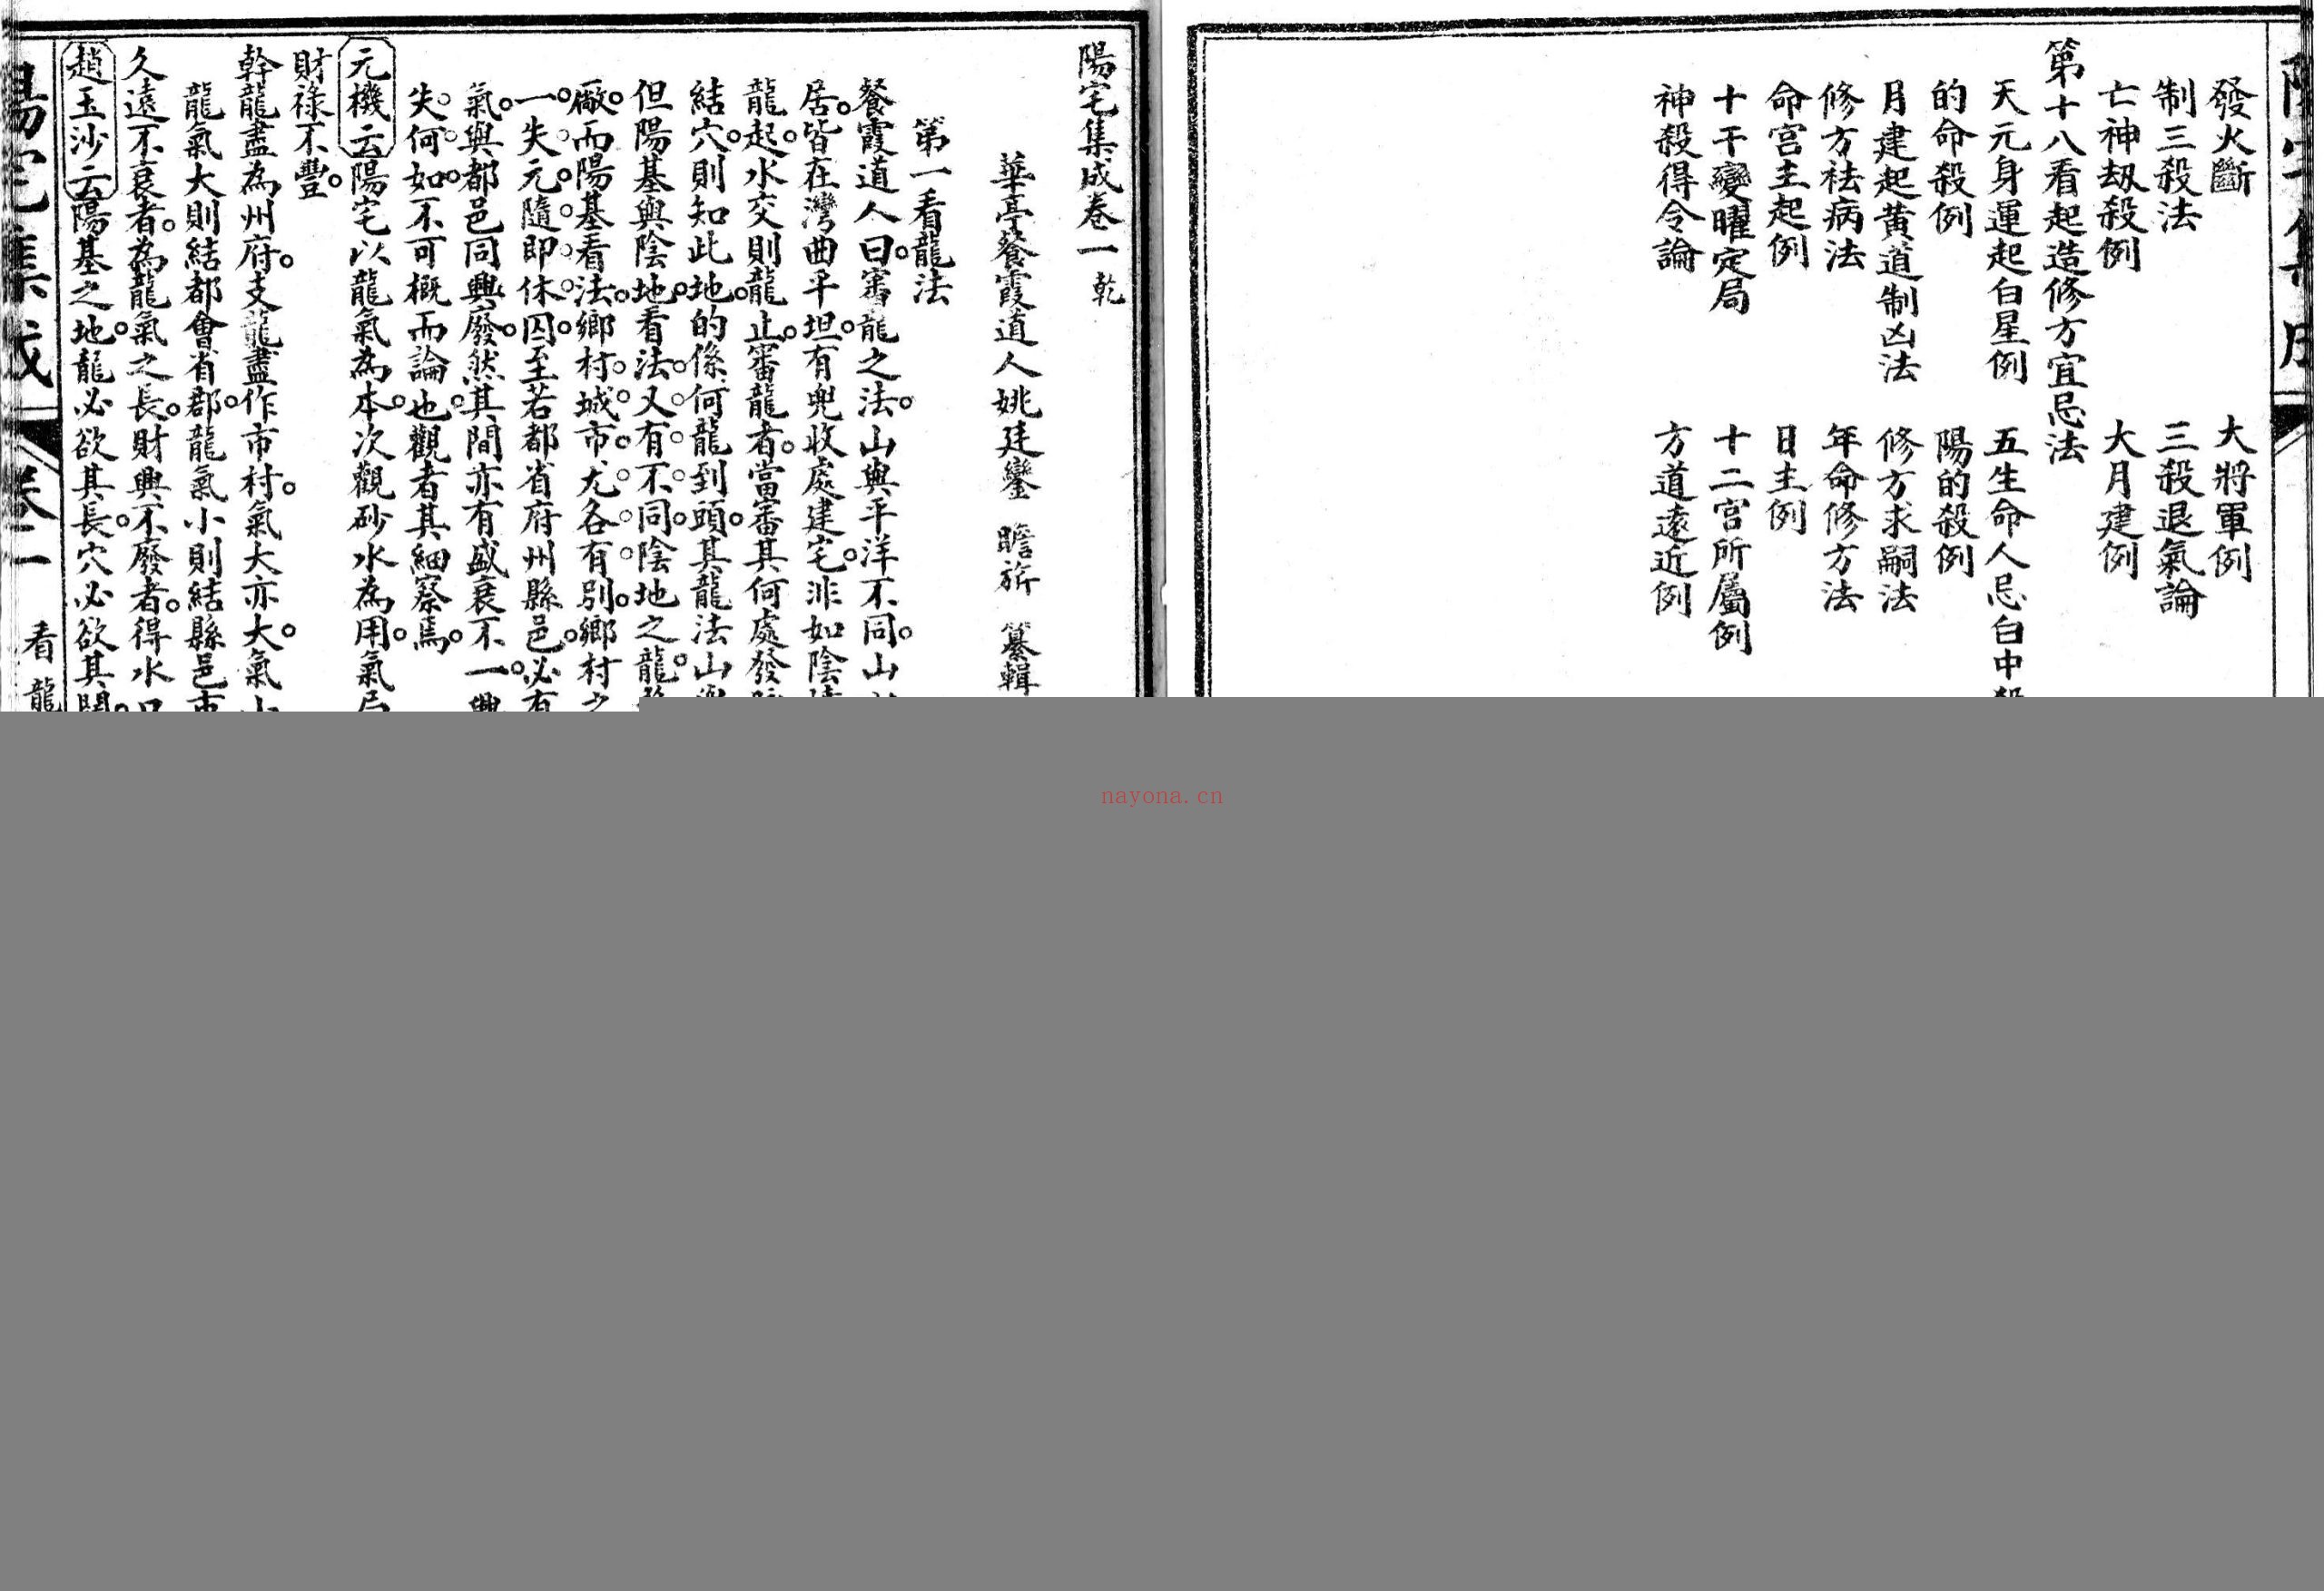 發火斷 大將軍例
制三殺法 三殺退氣論
亡神劫殺例 大月建例
第十八看起造修方宜忌法
天元身運起白星例 五生命人忌白中
的命殺例 陽的殺例
月建起黃道制凶法 修方求嗣法
修方祛病法 年命修方法
命宮主起例 日主例
十干變曜定局 十二宮所屬例
神殺得令論 方道遠近例
陽宅集成卷一 乾
華亭餐霞道人姚廷鑾 瞻旂 纂輯
第一看龍法
餐霞道人曰審龍之法山與平洋不同山
居皆在灣曲平坦有兜收處建宅非如陰
龍起水交則龍止審龍者當審其何處發
結穴則知此地的係何龍到頭其龍法山
但陽基與陰地看法又有不同陰地之龍
廠而陽基看法鄉村城市尤各有別鄉村之
一失元隨即休囚至若都省府州縣邑必有
氣與都邑同興廢然其間亦有盛衰不一興
失何如不可概而論也觀者其細察焉
元機云陽宅以龍氣為本次觀砂水為用氣
財祿不豐
幹龍盡為州府支龍盡作市村氣大亦大氣小
龍氣大則結都會省郡龍氣小則結縣邑市
久遠不衰者為龍氣之長財興不廢者得水
趙玉沙云陽基之地龍必欲其長穴必欲其闊
陽宅集成 卷一 看龍
nayona.cn